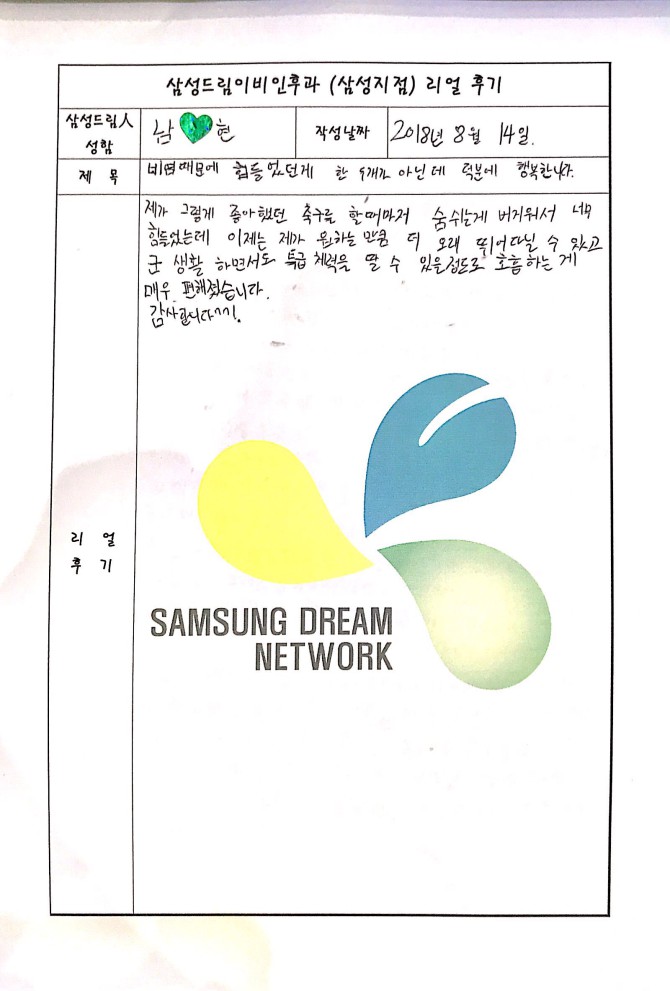 삼성드림이비인후과 (삼성지점) 리얼 후기
삼성드림人
성함
남 현
작성날짜
2018년 8월 14일.
제 목
비염때문에 힘들었던게 한 두개가 아닌데 덕분에 행복한
제가 그렇게 좋아했던 축구를 할때마저 숨쉬는게 버거워서 너무
힘들었는데 이제는 제가 원하는 만큼 더 오래 뛰어다닐 수 있고
군 생활 하면서도 특급 체력을 딸 수 있을정도로 호흡하는 게
매우 편해졌습니다.
감사합니다^^.
리 얼
후 기
SAMSUNG DREAM
NETWORK